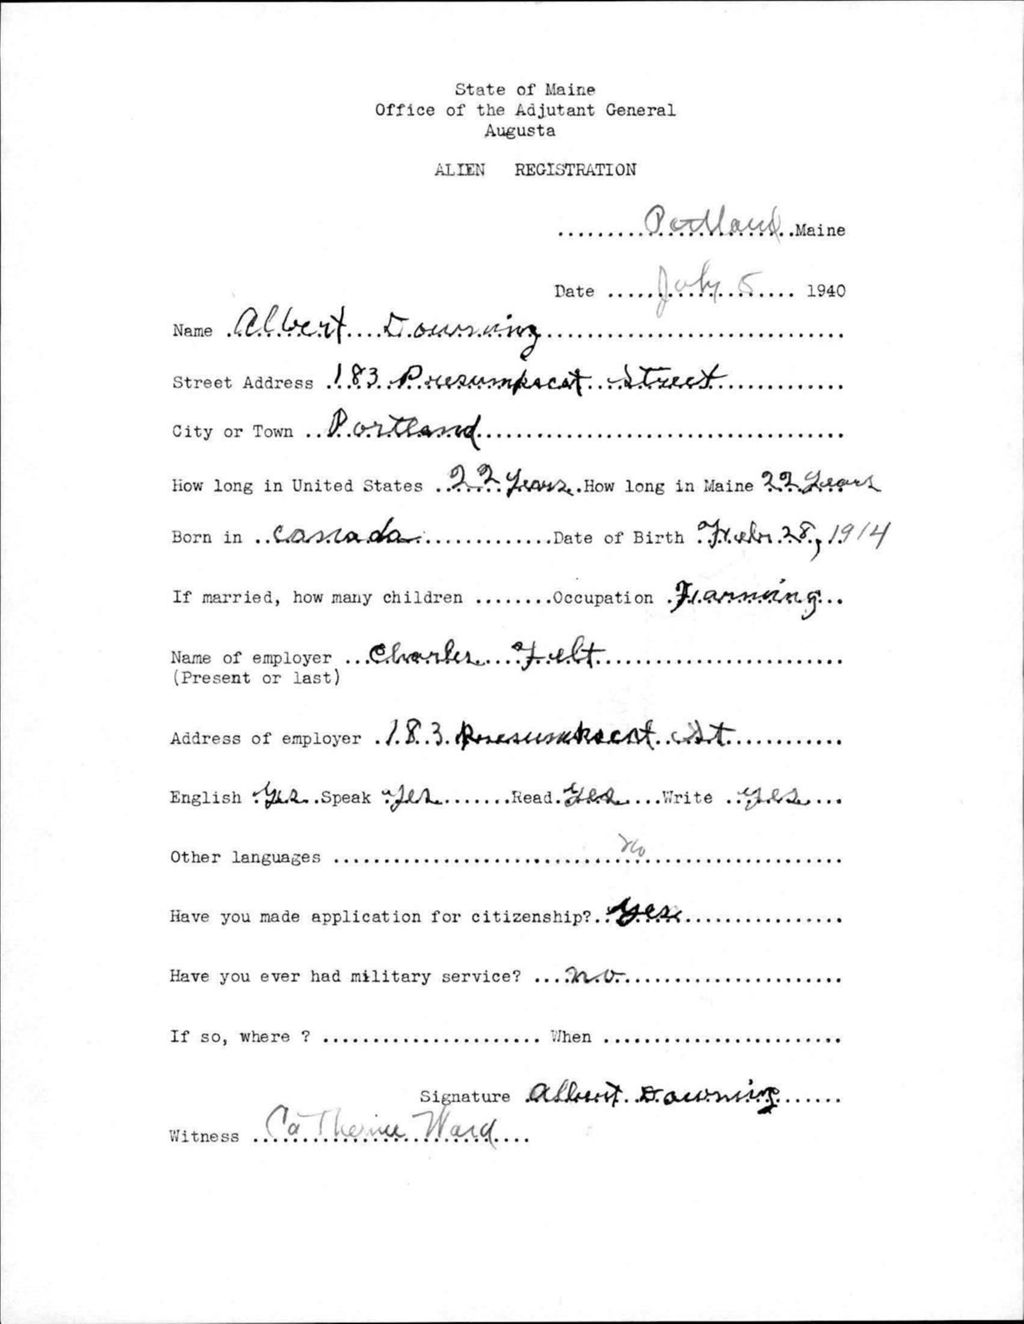 State of Maine
Office of the Adjutant General
Augusta
ALIEN REGISTRATION
.........Portland..Maine
Date .....July 5.... 1940
Name .Albert....Downing..............................
Street Address .183..Presumpscot..Street.............
City or Town ..Portland.....................................
How long in United States ..22.Years..How long in Maine 22.Years
Born in ..Canada.............Date of Birth .Feb. 28, 1914
If married, how many children ........Occupation .Farming...
Name of employer ...Charles....Felt.........................
(Present or last)
Address of employer .183.Presumpscot..St............
English .Yes..Speak .Yes.......Read.Yes....Write ..Yes....
Other languages .............................No....................
Have you made application for citizenship?..Yes................
Have you ever had military service? ...no......................
If so, where ? ...................... When ........................
Signature .Albert..Downing......
Witness .Catherine Ward....